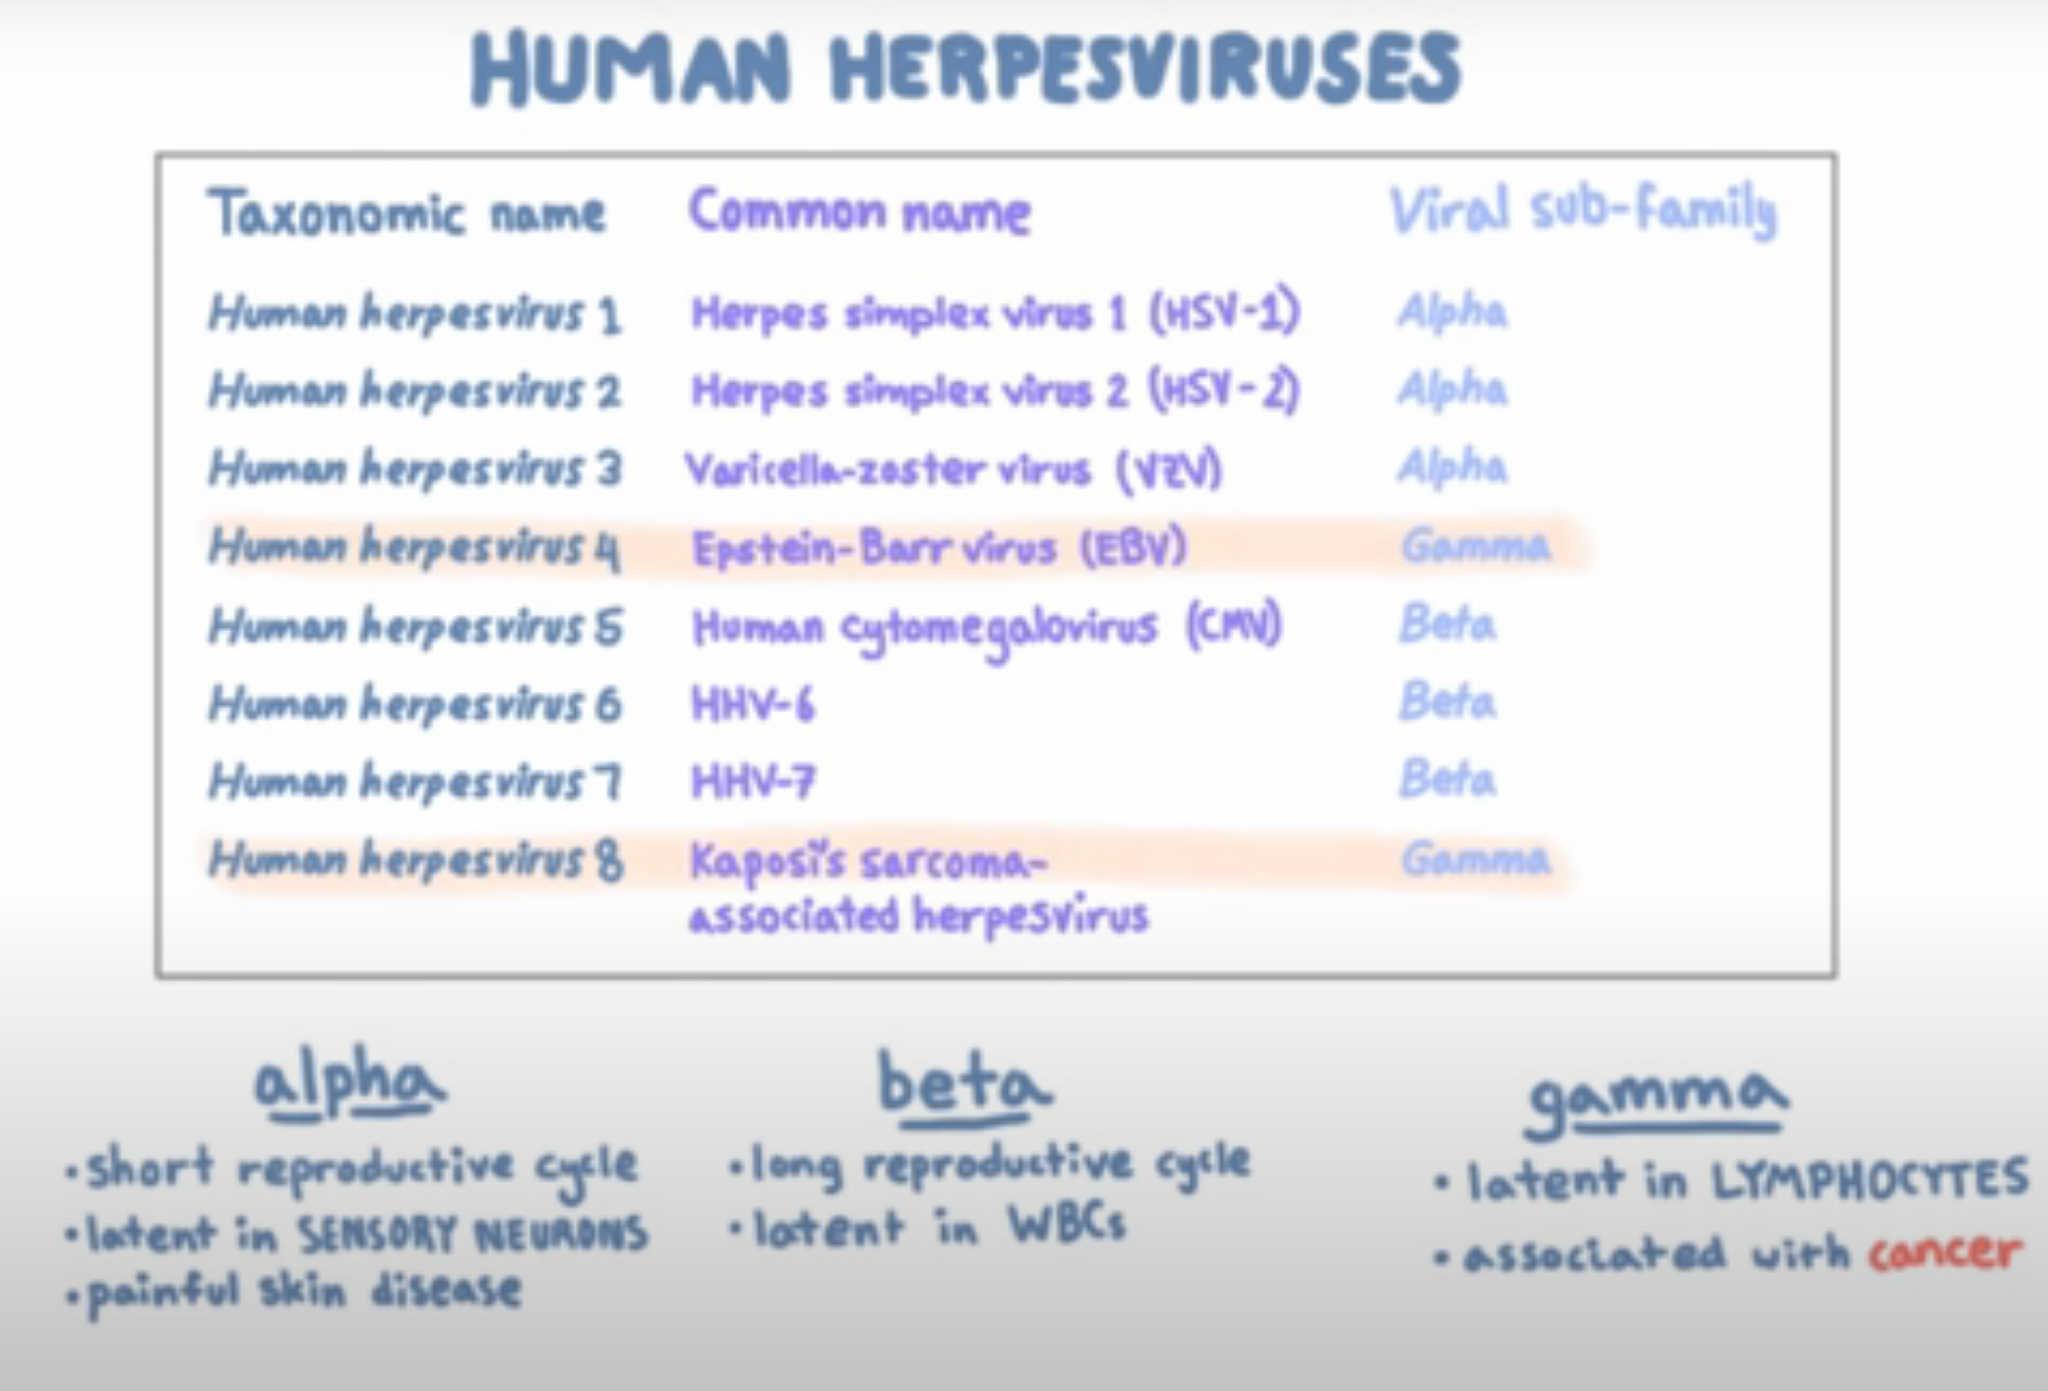 HUMAN HERPESVIRUSES
Taxonomic name Common name Viral sub-family
Human herpesvirus 1 Herpes simplex virus 1 (HSV-1) Alpha
Human herpesvirus 2 Herpes simplex virus 2 (HSV-2) Alpha
Human herpesvirus 3 Varicella-zoster virus (VZV) Alpha
Human herpesvirus 4 Epstein-Barr virus (EBV) Gamma
Human herpesvirus 5 Human cytomegalovirus (CMV) Beta
Human herpesvirus 6 HHV-6 Beta
Human herpesvirus 7 HHV-7 Beta
Human herpesvirus 8 Kaposi's sarcoma- Gamma
associated herpesvirus
alpha
• short reproductive cycle
• latent in SENSORY NEURONS
• painful skin disease
beta
• long reproductive cycle
• latent in WBCs
gamma
• latent in LYMPHOCYTES
• associated with cancer